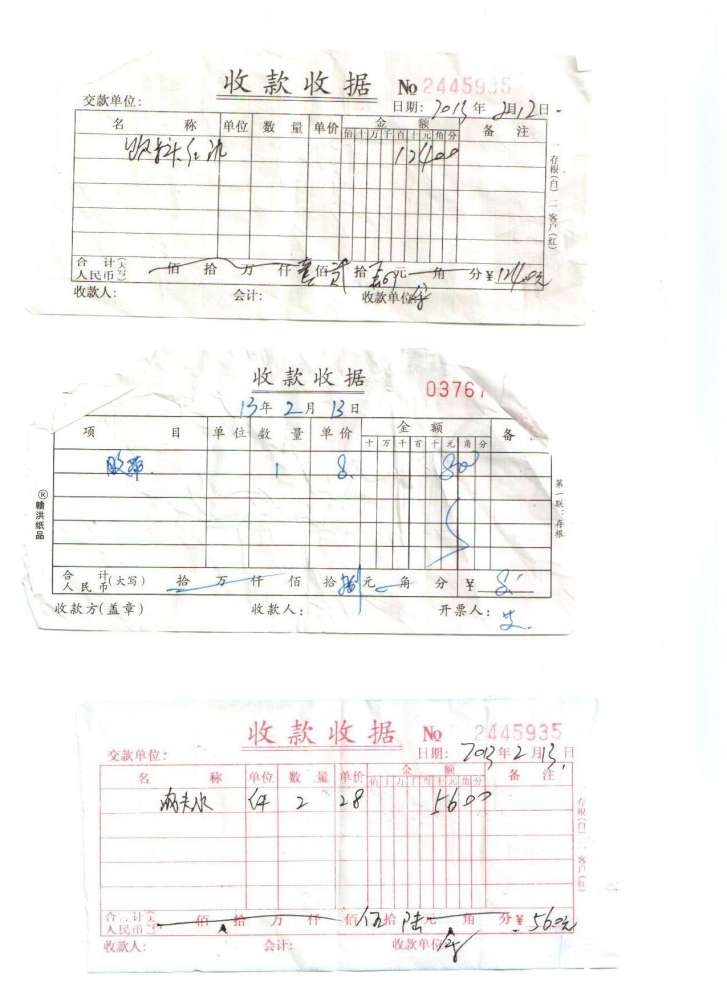 收款收据 No 2445935
交款单位： 日期：2013年2月12日
名称 单位 数量 单价 金额 备注
佰十万千百十元角分
12400
存根（白） 二 客户（红）
合计 人民币（大写） 佰 拾 万 仟 壹佰 贰拾 元 角 分 ￥124.00元
收款人： 会计： 收款单位
收款收据 03767
13年2月13日
项目 单位 数量 单价 金额 备
十万千百十元角分
1 8. 800
第一联：存根
® 赣洪纸品
合计 人民币（大写） 拾 万 仟 佰 拾 捌元 角 分 ￥8.
收款方（盖章） 收款人： 开票人：
收款收据 No 2445935
交款单位： 日期：2013年2月13日
名称 单位 数量 单价 金额 备注
佰十万千百十元角分
件 2 28 5600
存根（白） 二 客户（红）
合计 人民币（大写） 佰 拾 万 仟 佰 伍拾 陆元 角 分 ￥56.0元
收款人： 会计： 收款单位